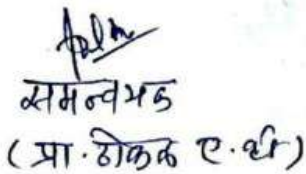 समन्वयक
(प्रा. ढोकळे ए. बी)